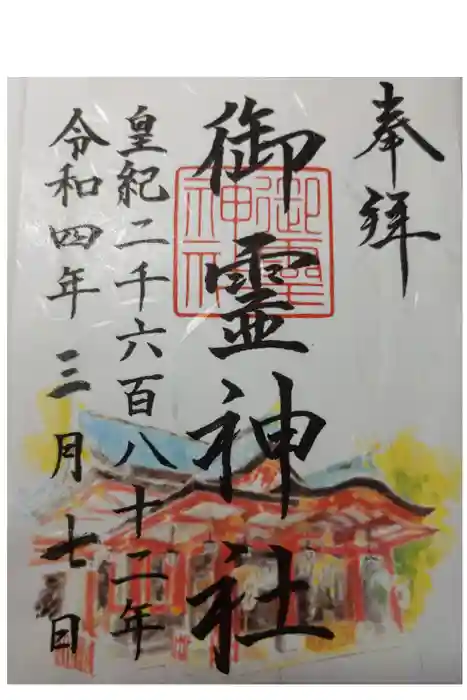 奉拜
御靈神社
御霊神社
皇紀二千六百八十二年
令和四年三月七日